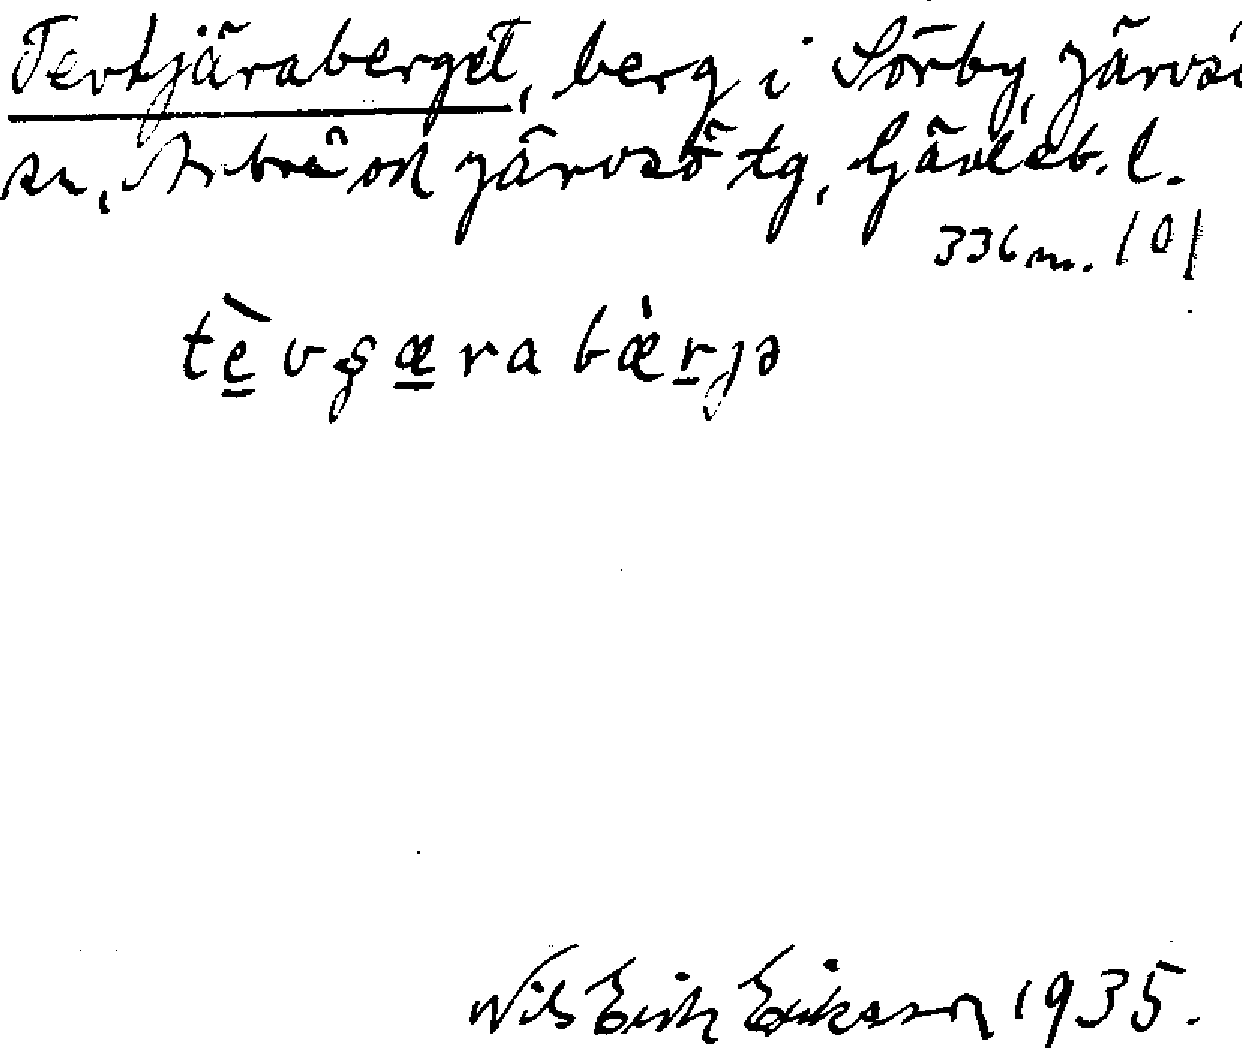 Tevtjäraberget, berg i Sörby, Järvsö
sn, Arbrå och Järvsö tg, Gävleb. l.
336 m. (0)
tèvʂæra bæ̀rjə
Nils Erik Eriksson 1935.